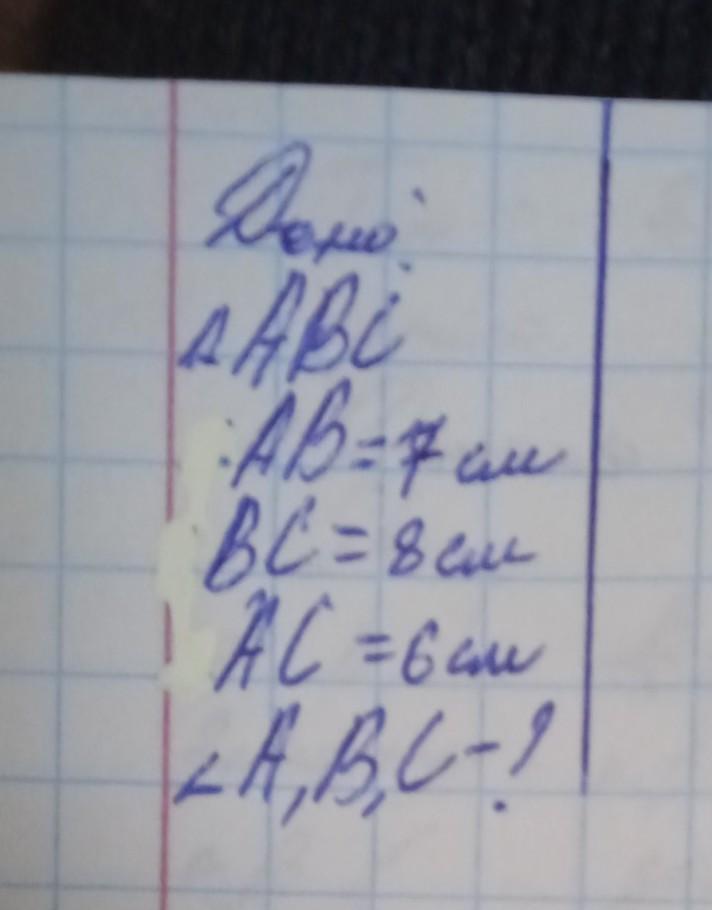 Дано:
△ABC
AB=7 см
BC=8 см
AC=6 см
∠A, B, C-?